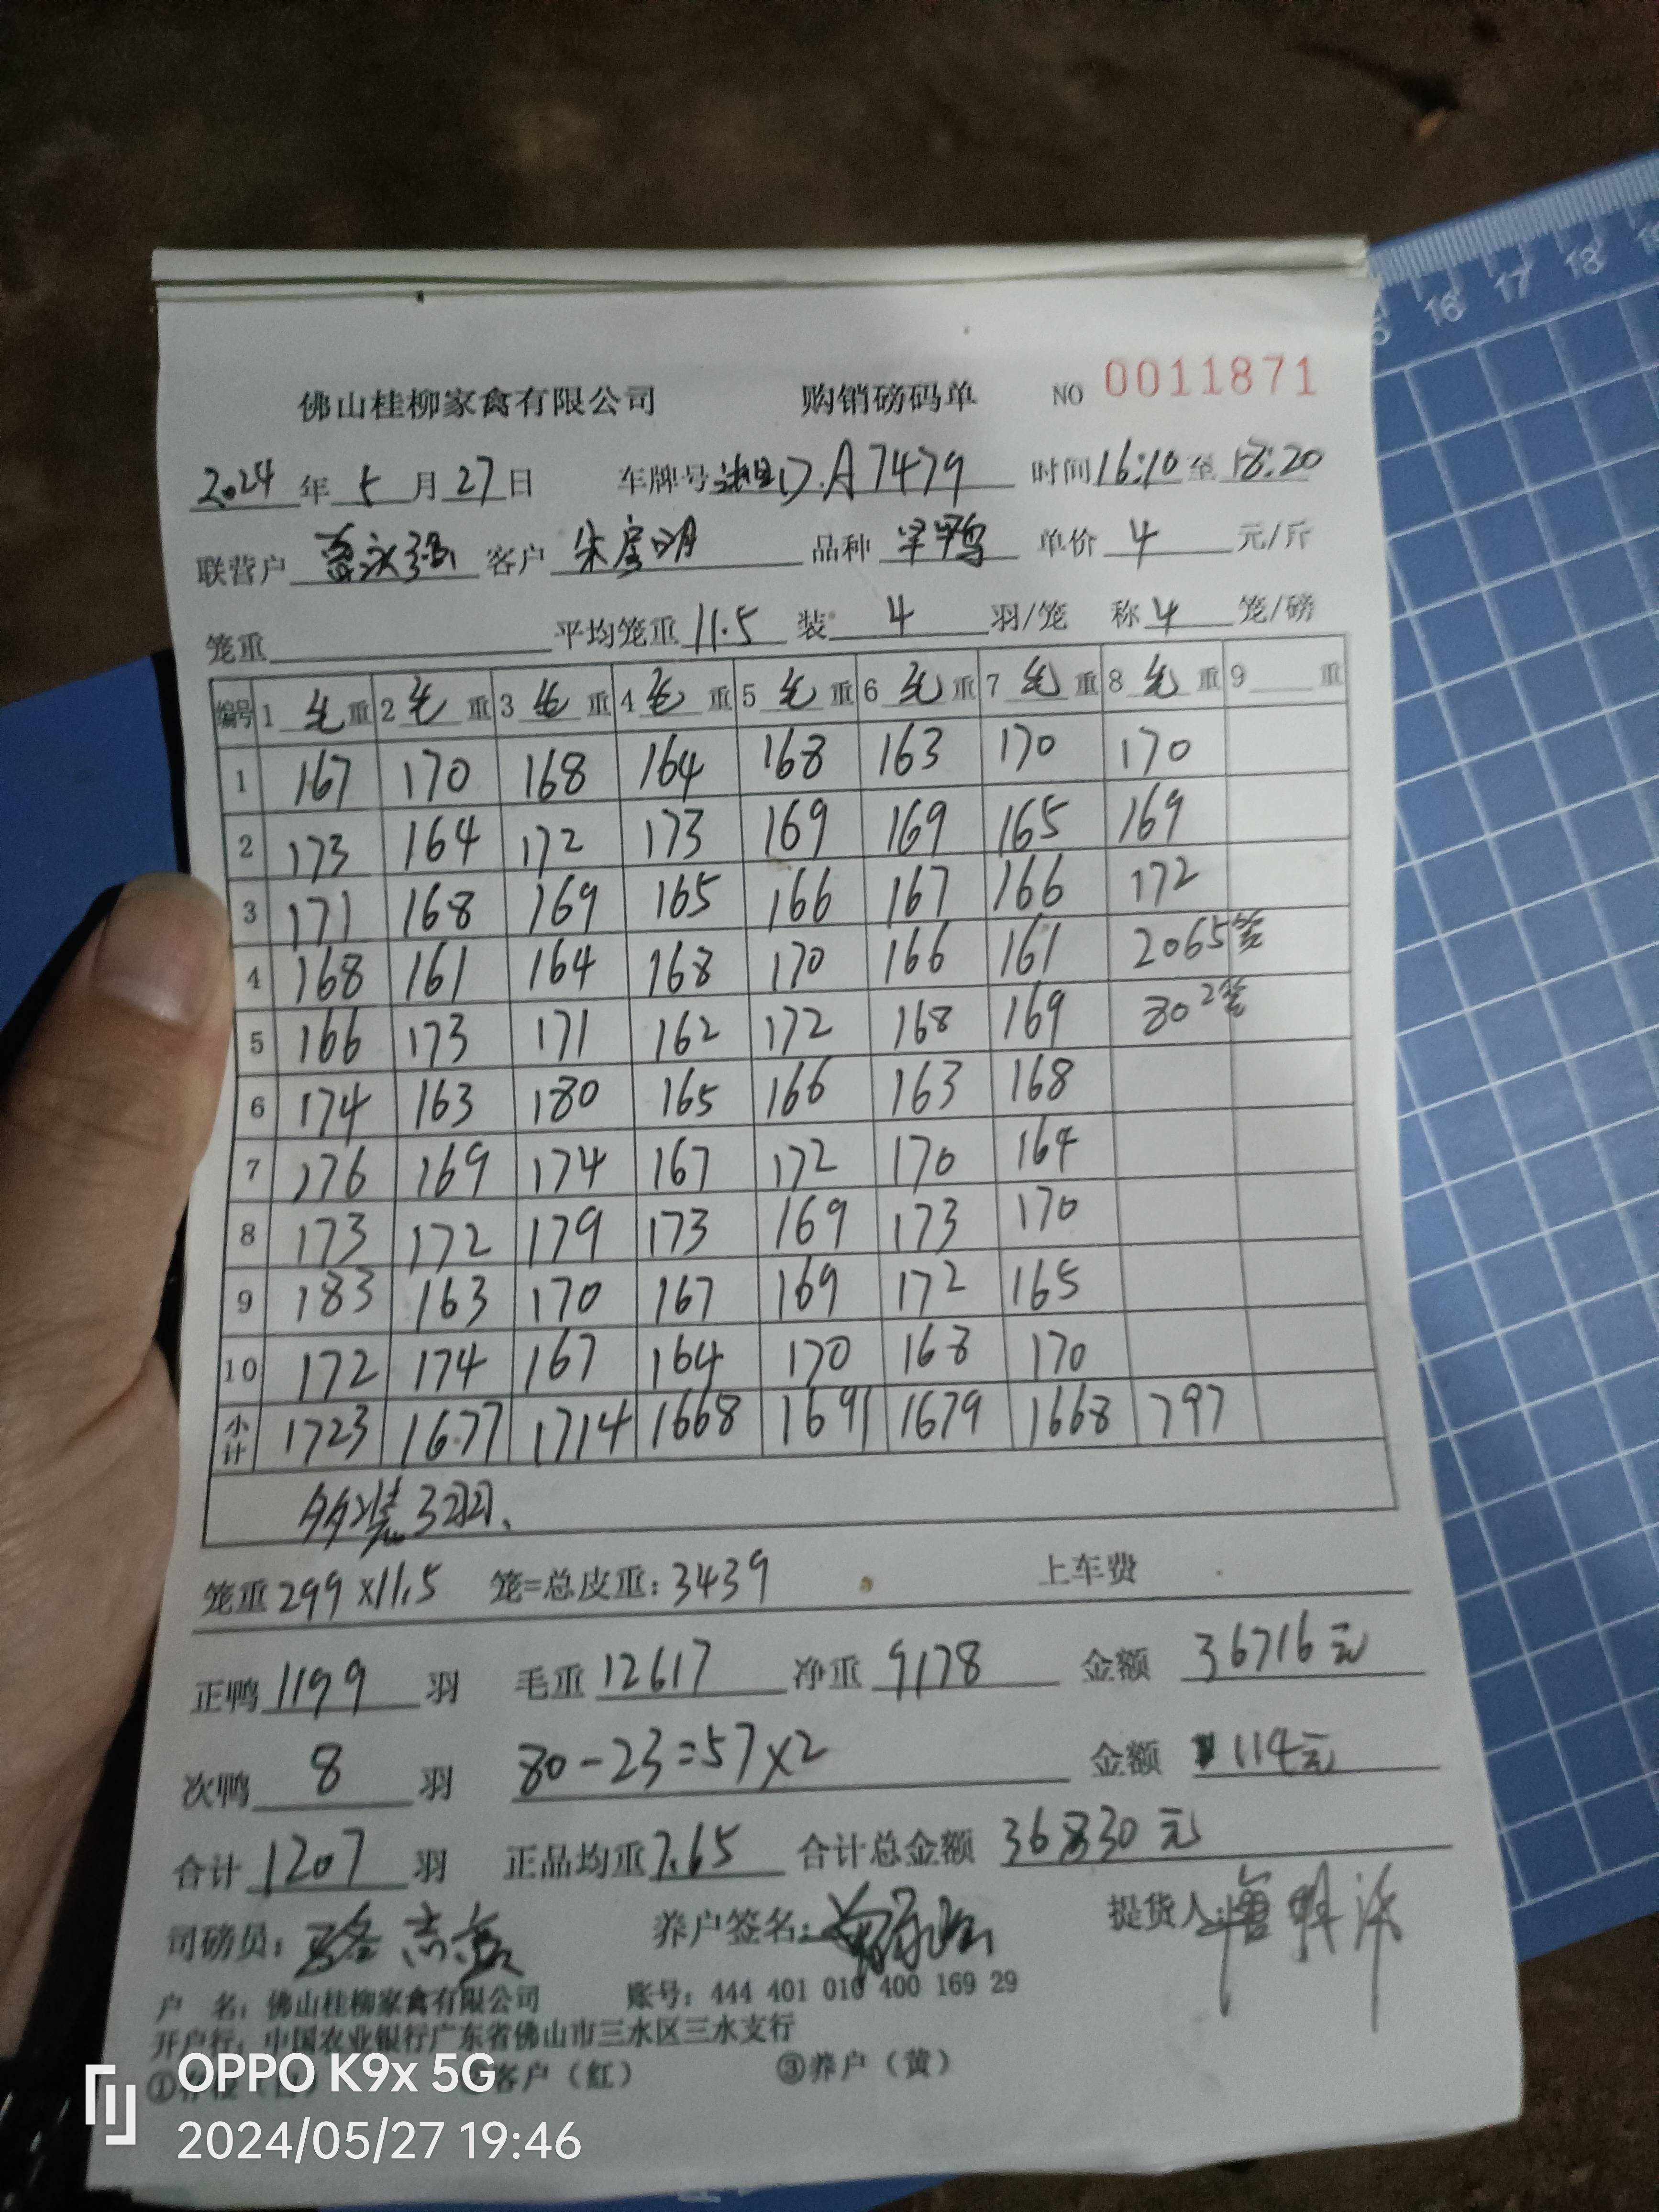 佛山桂柳家禽有限公司 购销磅码单 NO 0011871
2024年5月27日 车牌号 湘D.A7479 时间16:10至18:20
联营户 永强 客户 朱 明 品种 鸭 单价 4 元/斤
笼重 平均笼重 11.5 装 4 羽/笼 称 4 笼/磅
编号 1 毛重 2 毛重 3 毛重 4 毛重 5 毛重 6 毛重 7 毛重 8 毛重 9 重
1 167 170 168 164 168 163 170 170
2 173 164 172 173 169 169 165 169
3 171 168 169 165 166 167 166 172
4 168 161 164 168 170 166 161 206 5笼
5 166 173 171 162 172 168 169 80 2笼
6 174 163 180 165 166 163 168
7 176 169 174 167 172 170 164
8 173 172 179 173 169 173 170
9 183 163 170 167 169 172 165
10 172 174 167 164 170 168 170
小计 1723 1677 1714 1668 1691 1679 1668 797
多装3羽.
笼重 299×11.5 笼=总皮重: 3439 上车费
正鸭 1199 羽 毛重 12617 净重 9178 金额 36716元
次鸭 8 羽 80-23=57×2 金额 114元
合计 1207 羽 正品均重 7.65 合计总金额 36830元
司磅员: 志 养户签名: 提货人:
户 名: 佛山桂柳家禽有限公司 账号: 444 401 010 400 169 29
开户行: 中国农业银行广东省佛山市三水区三水支行
客户(红) ③养户(黄)
OPPO K9x 5G
2024/05/27 19:46
16 17 18